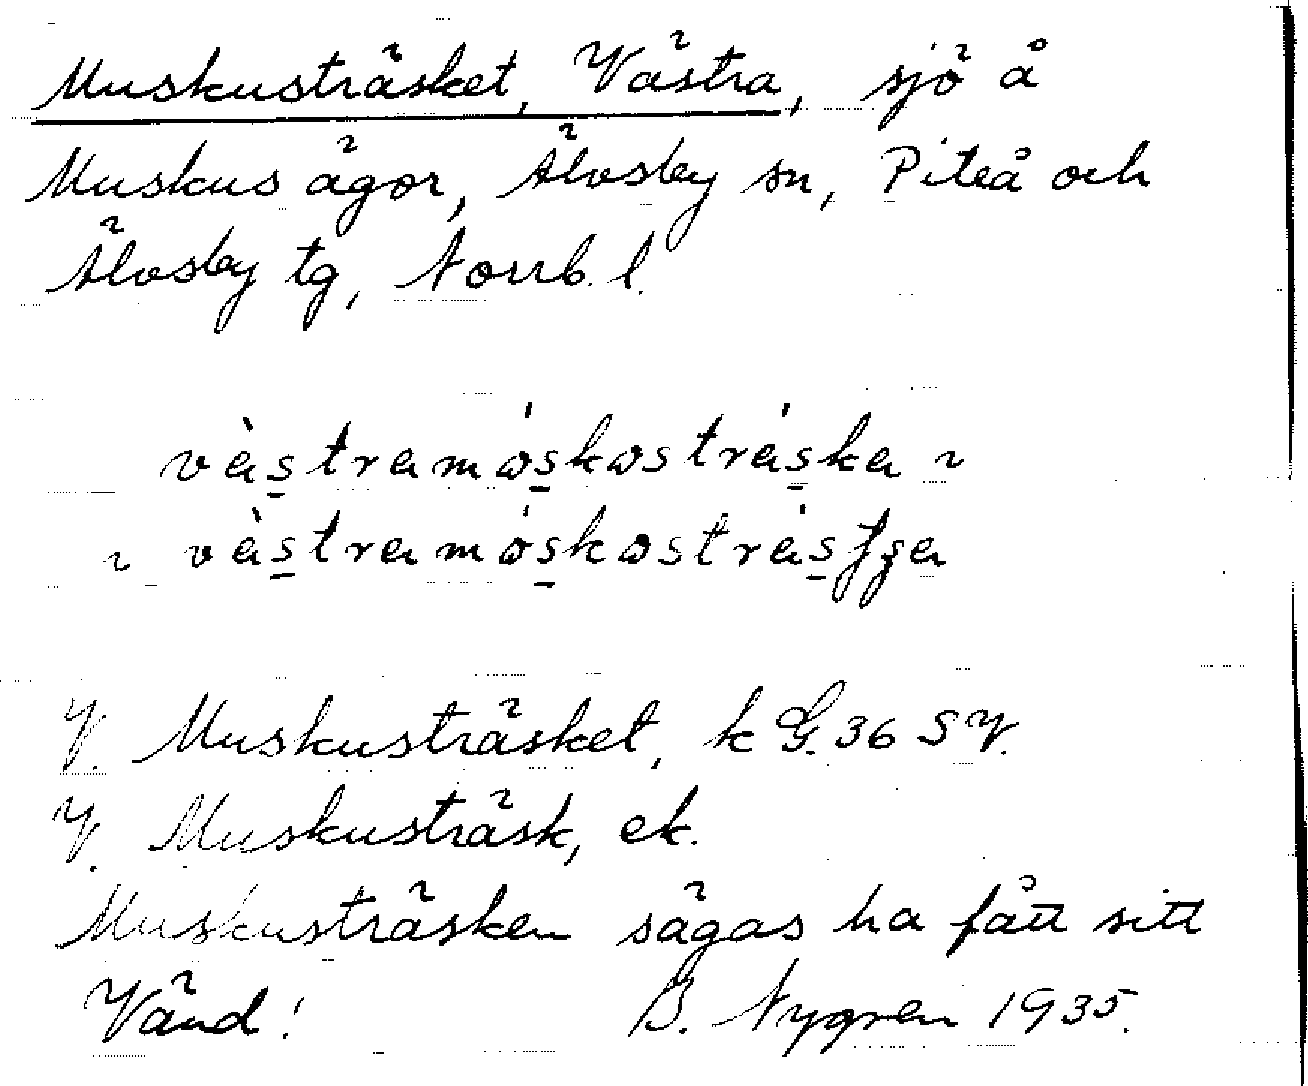 Muskusträsket, Västra, sjö å
Muskus ägor, Älvsby sn, Piteå och
Älvsby tg, Norrb. l.
V. Muskusträsket, k G. 36 SV.
V. Muskusträsk, ek.
Muskusträsken sägas ha fått sitt
Vänd! B. Nygren 1935.